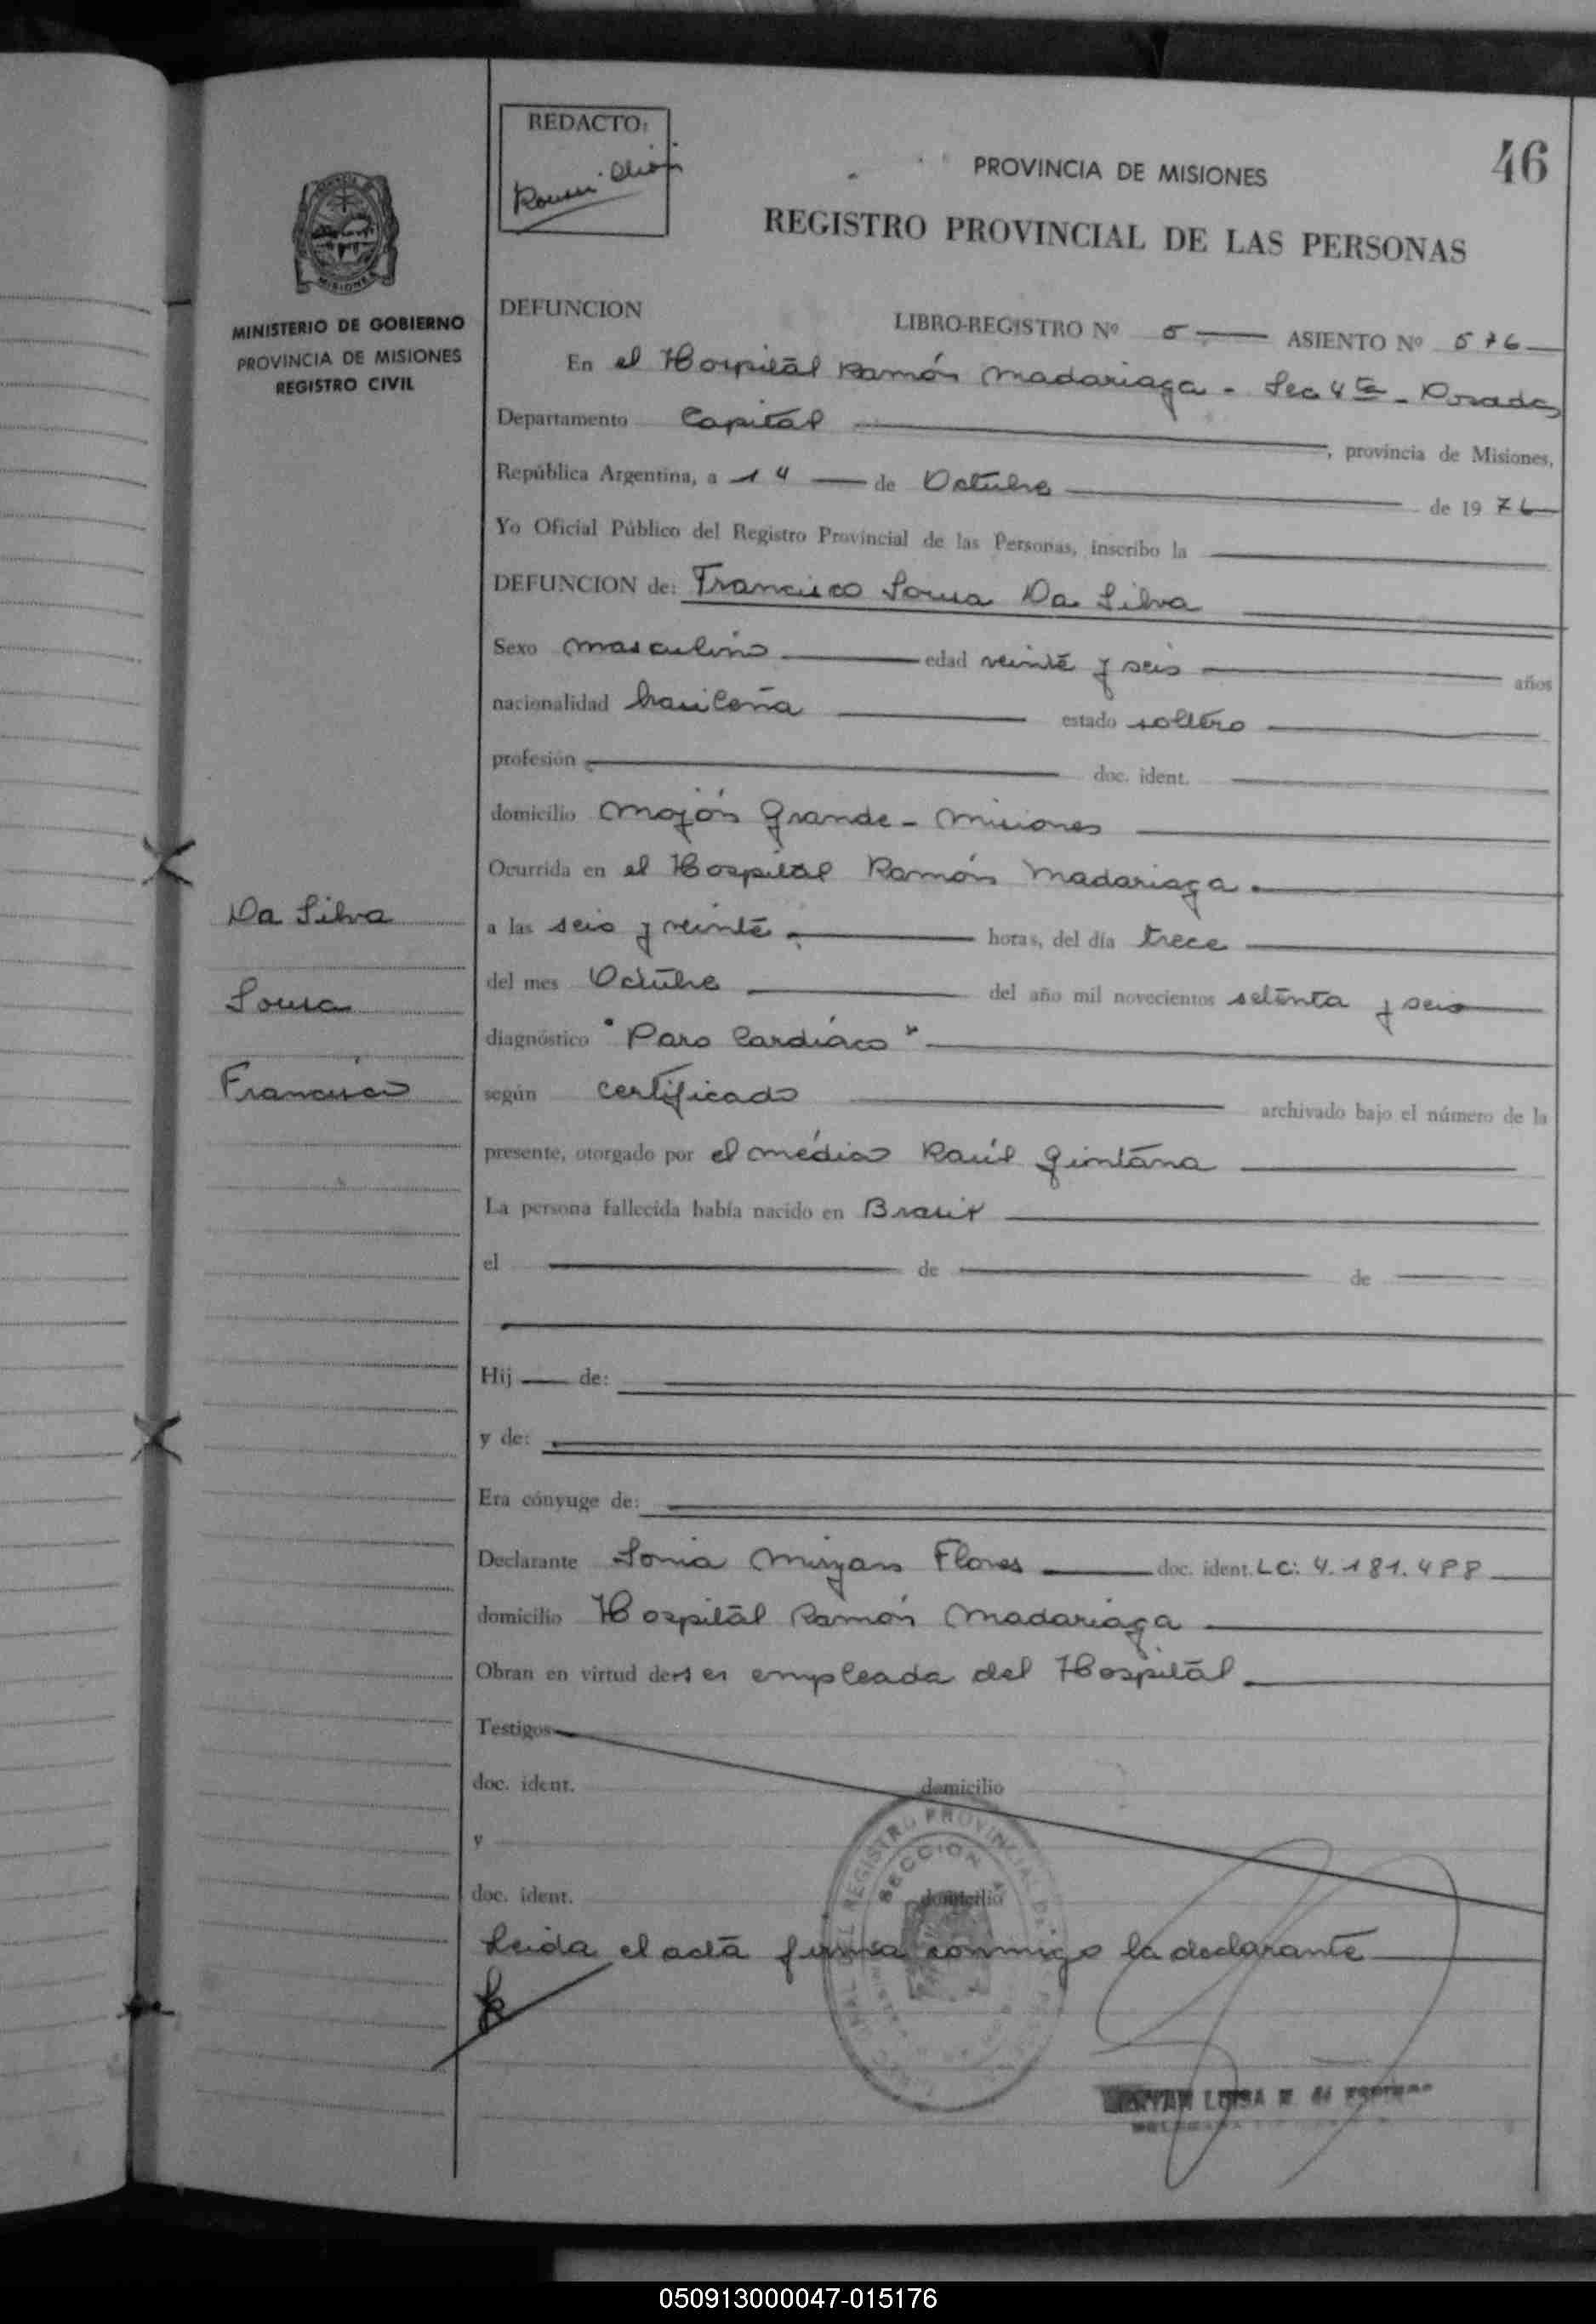 REDACTO:
46
PROVINCIA DE MISIONES
REGISTRO PROVINCIAL DE LAS PERSONAS
MISIONES
MINISTERIO DE GOBIERNO
PROVINCIA DE MISIONES
REGISTRO CIVIL
DEFUNCION
LIBRO-REGISTRO Nº 5 ASIENTO Nº 576
En el Hospital Ramón Madariaga - Sec 4ta - Posadas
Departamento Capital, provincia de Misiones,
República Argentina, a 14 de Octubre de 1976
Yo Oficial Público del Registro Provincial de las Personas, inscribo la
DEFUNCION de: Francisco Sousa Da Silva
Sexo masculino edad veinte y seis años
nacionalidad brasileña estado soltero
profesión doc. ident.
domicilio Mojón Grande - Misiones
Ocurrida en el Hospital Ramón Madariaga.
Da Silva
a las seis y veinte. horas, del día trece
Sousa
del mes Octubre del año mil novecientos setenta y seis
diagnóstico "Paro Cardíaco"
Francisco
según certificado archivado bajo el número de la
presente, otorgado por el médico Raúl Quintana
La persona fallecida había nacido en Brasil
el de de
Hij de:
y de:
Era cónyuge de:
Declarante Sonia Miryan Flores doc. ident. LC: 4.181.488
domicilio Hospital Ramón Madariaga
Obran en virtud de ser empleada del Hospital.
Testigos
doc. ident. domicilio
y
doc. ident. domicilio
REGISTRO PROVINCIAL
SECCION
Leida el acta firma conmigo la declarante
LUISA
050913000047-015176